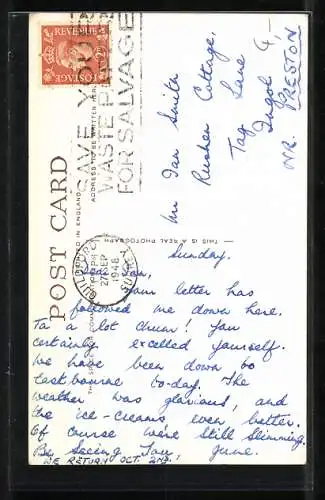 POST CARD
PRINTED IN ENGLAND
ADDRESS TO BE WRITTEN HERE
THIS IS A REAL PHOTOGRAPH
POSTAGE
REVENUE
SAVE YOUR
WASTE PAPER
FOR SALVAGE
GUILDFORD
PM
27 SEP
1948
SURREY
Mr Ian Smith
Rushen Cottage,
Tag Lane,
Ingol
NR. PRESTON
Sunday.
Dear Ian,
Your letter has
followed me down here.
Ta a lot chum! You
certainly excelled yourself.
We have been down to
Eastbourne to-day. The
weather was glorious, and
the ice-creams even better.
Of course we're still slimming.
Be Seeing You, June.
WE RETURN OCT. 2ND.